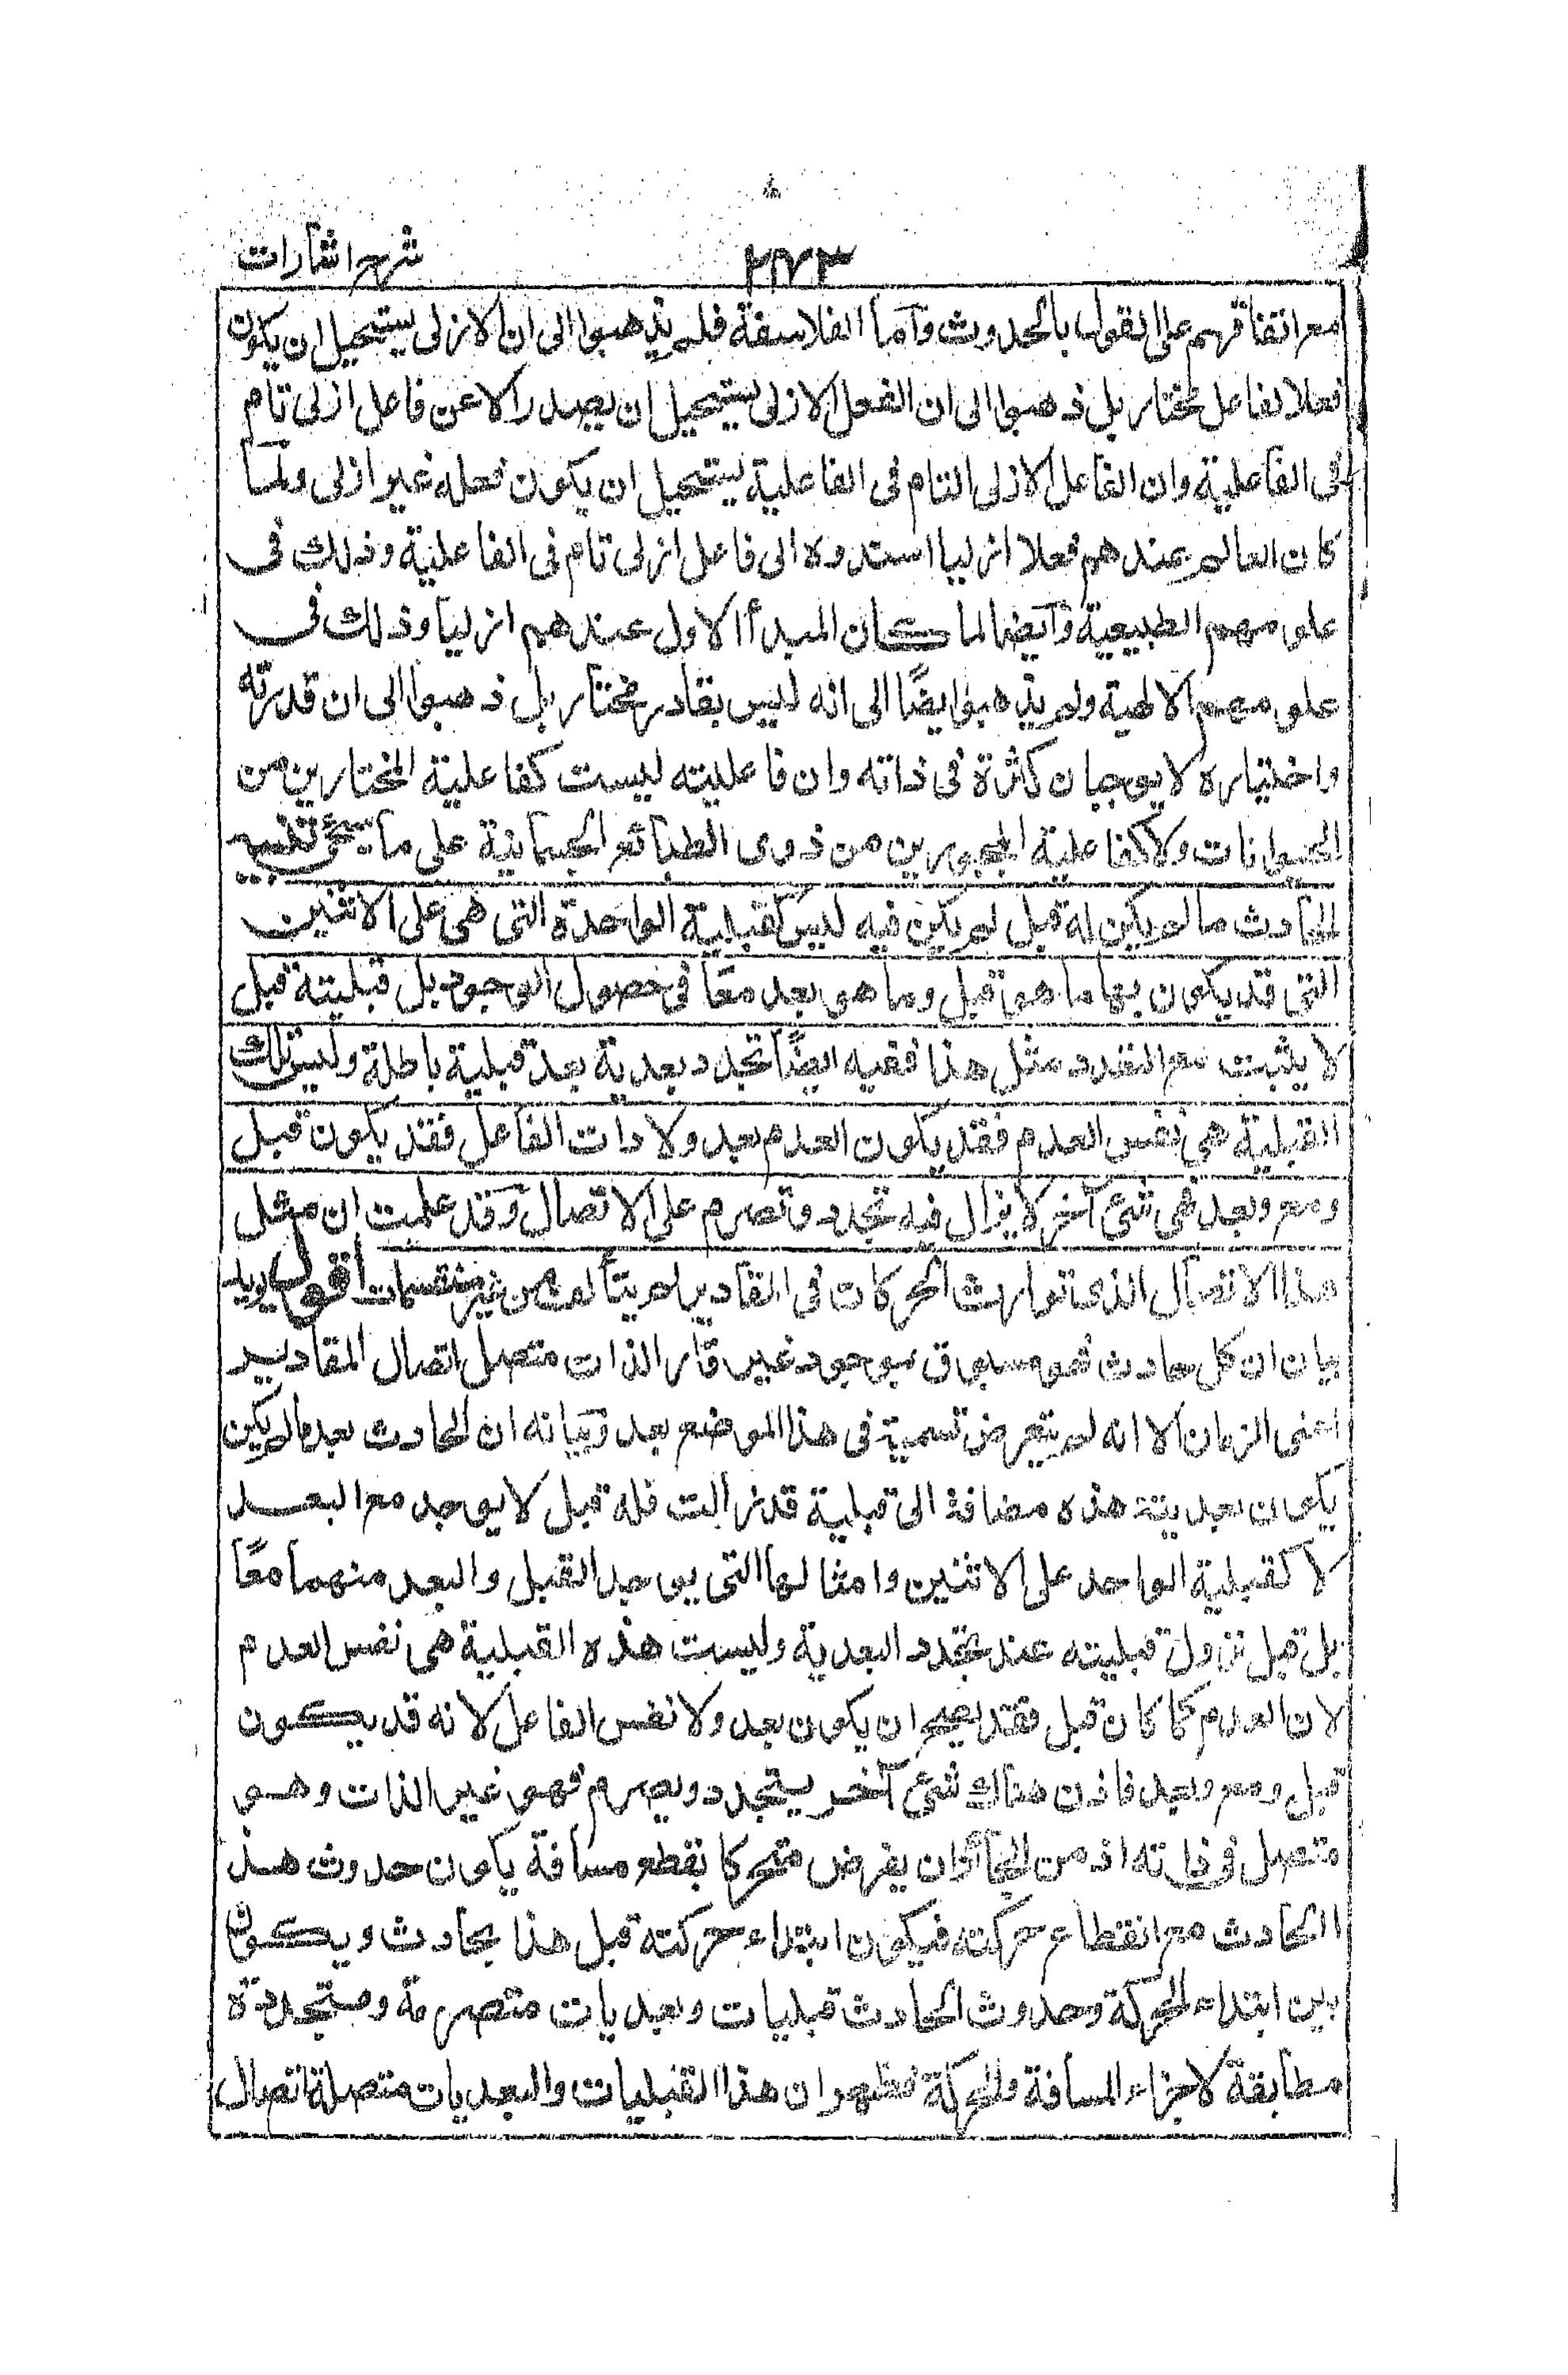 ٢٧٣
شرح اشارات
مع اتفاقهم على القول بالحدوث وآما الفلاسفة فلم يذهبوا الى ان الازلى يستحيل ان يكون
فعلا لفاعل مختار بل ذهبوا الى ان الفعل الازلى يستحيل ان يصدر الا عن فاعل ازلى تام
فى الفاعلية وان الفاعل الازلى التام فى الفاعلية يستحيل ان يكون فعله غير ازلى ولمآ
كان العالم عندهم فعلا ازليا اسندوه الى فاعل ازلى تام فى الفاعلية وذلك فى
علومهم الطبيعية وآيضا لما كان المبدأ الاول عندهم ازليا وذلك فى
علومهم الالهية ولم يذهبوا ايضًا الى انه ليس بقادر مختار بل ذهبوا الى ان قدرته
واختياره لا يوجبان كثرة فى ذاته وان فاعليته ليست كفاعلية المختارين من
الحيوانات ولا كفاعلية المجبورين من ذوى الطبائع الجسمانية على ما سيجئ تنبيه
الحادث ما لم يكن له قبل لم يكن فيه ليس كقبلية الواحدة التى هى على الاثنين
التى قد يكون بها ما هو قبل وما هو بعد معًا فى حصول الوجود بل قبليته قبل
لا يثبت مع التجدد مثل هذا ففيه ايضًا تجدد بعدية بعد قبلية باطلة وليس تلك
القبلية هى نفس العدم فقد يكون العدم بعد ولا ذات الفاعل فقد يكون قبل
ومع وبعد فهى شئ آخر لا يزال فيه تجدد وتصرم على الاتصال وقد علمت ان مثل
هذا الاتصال الذى توازى الحركات فى المقادير لم يتألف من غير منقسمات اقول يريد
بيان ان كل حادث فهو مسبوق بموجود غير قار الذات متصل اتصال المقادير
اعنى الزمان الا انه لم يتعرض تسمية فى هذا الموضع بعد وبيانه ان الحادث بعد ما لم يكن
يكون بعديته هذه مضافة الى قبلية قد زالت فله قبل لا يوجد مع البعد
لا كقبلية الواحد على الاثنين وامثالها التى يوجد القبل والبعد منهما معًا
بل قبل تزول قبليته عند تجدد البعدية وليست هذه القبلية هى نفس العدم
لان العدم كما كان قبل فقد يصح ان يكون بعد ولا نفس الفاعل لانه قد يكون
قبل ومع وبعد فاذن هناك شئ آخر يتجدد ويصرم فهو غير الذات وهو
متصل فى ذاته اذ من الجائز ان يفرض متحركا بقطع مسافة يكون حدوث هذ
االحادث مع انقطاع حركته فيكون ابتداء حركته قبل هذا بحادث ويكون
بين ابتداء الحركة وحدوث الحادث قبليات وبعديات متصرمة ومتجددة
مطابقة لاجزاء المسافة والحركة فظهر ان هذا القبليات والبعديات متصلة اتصال